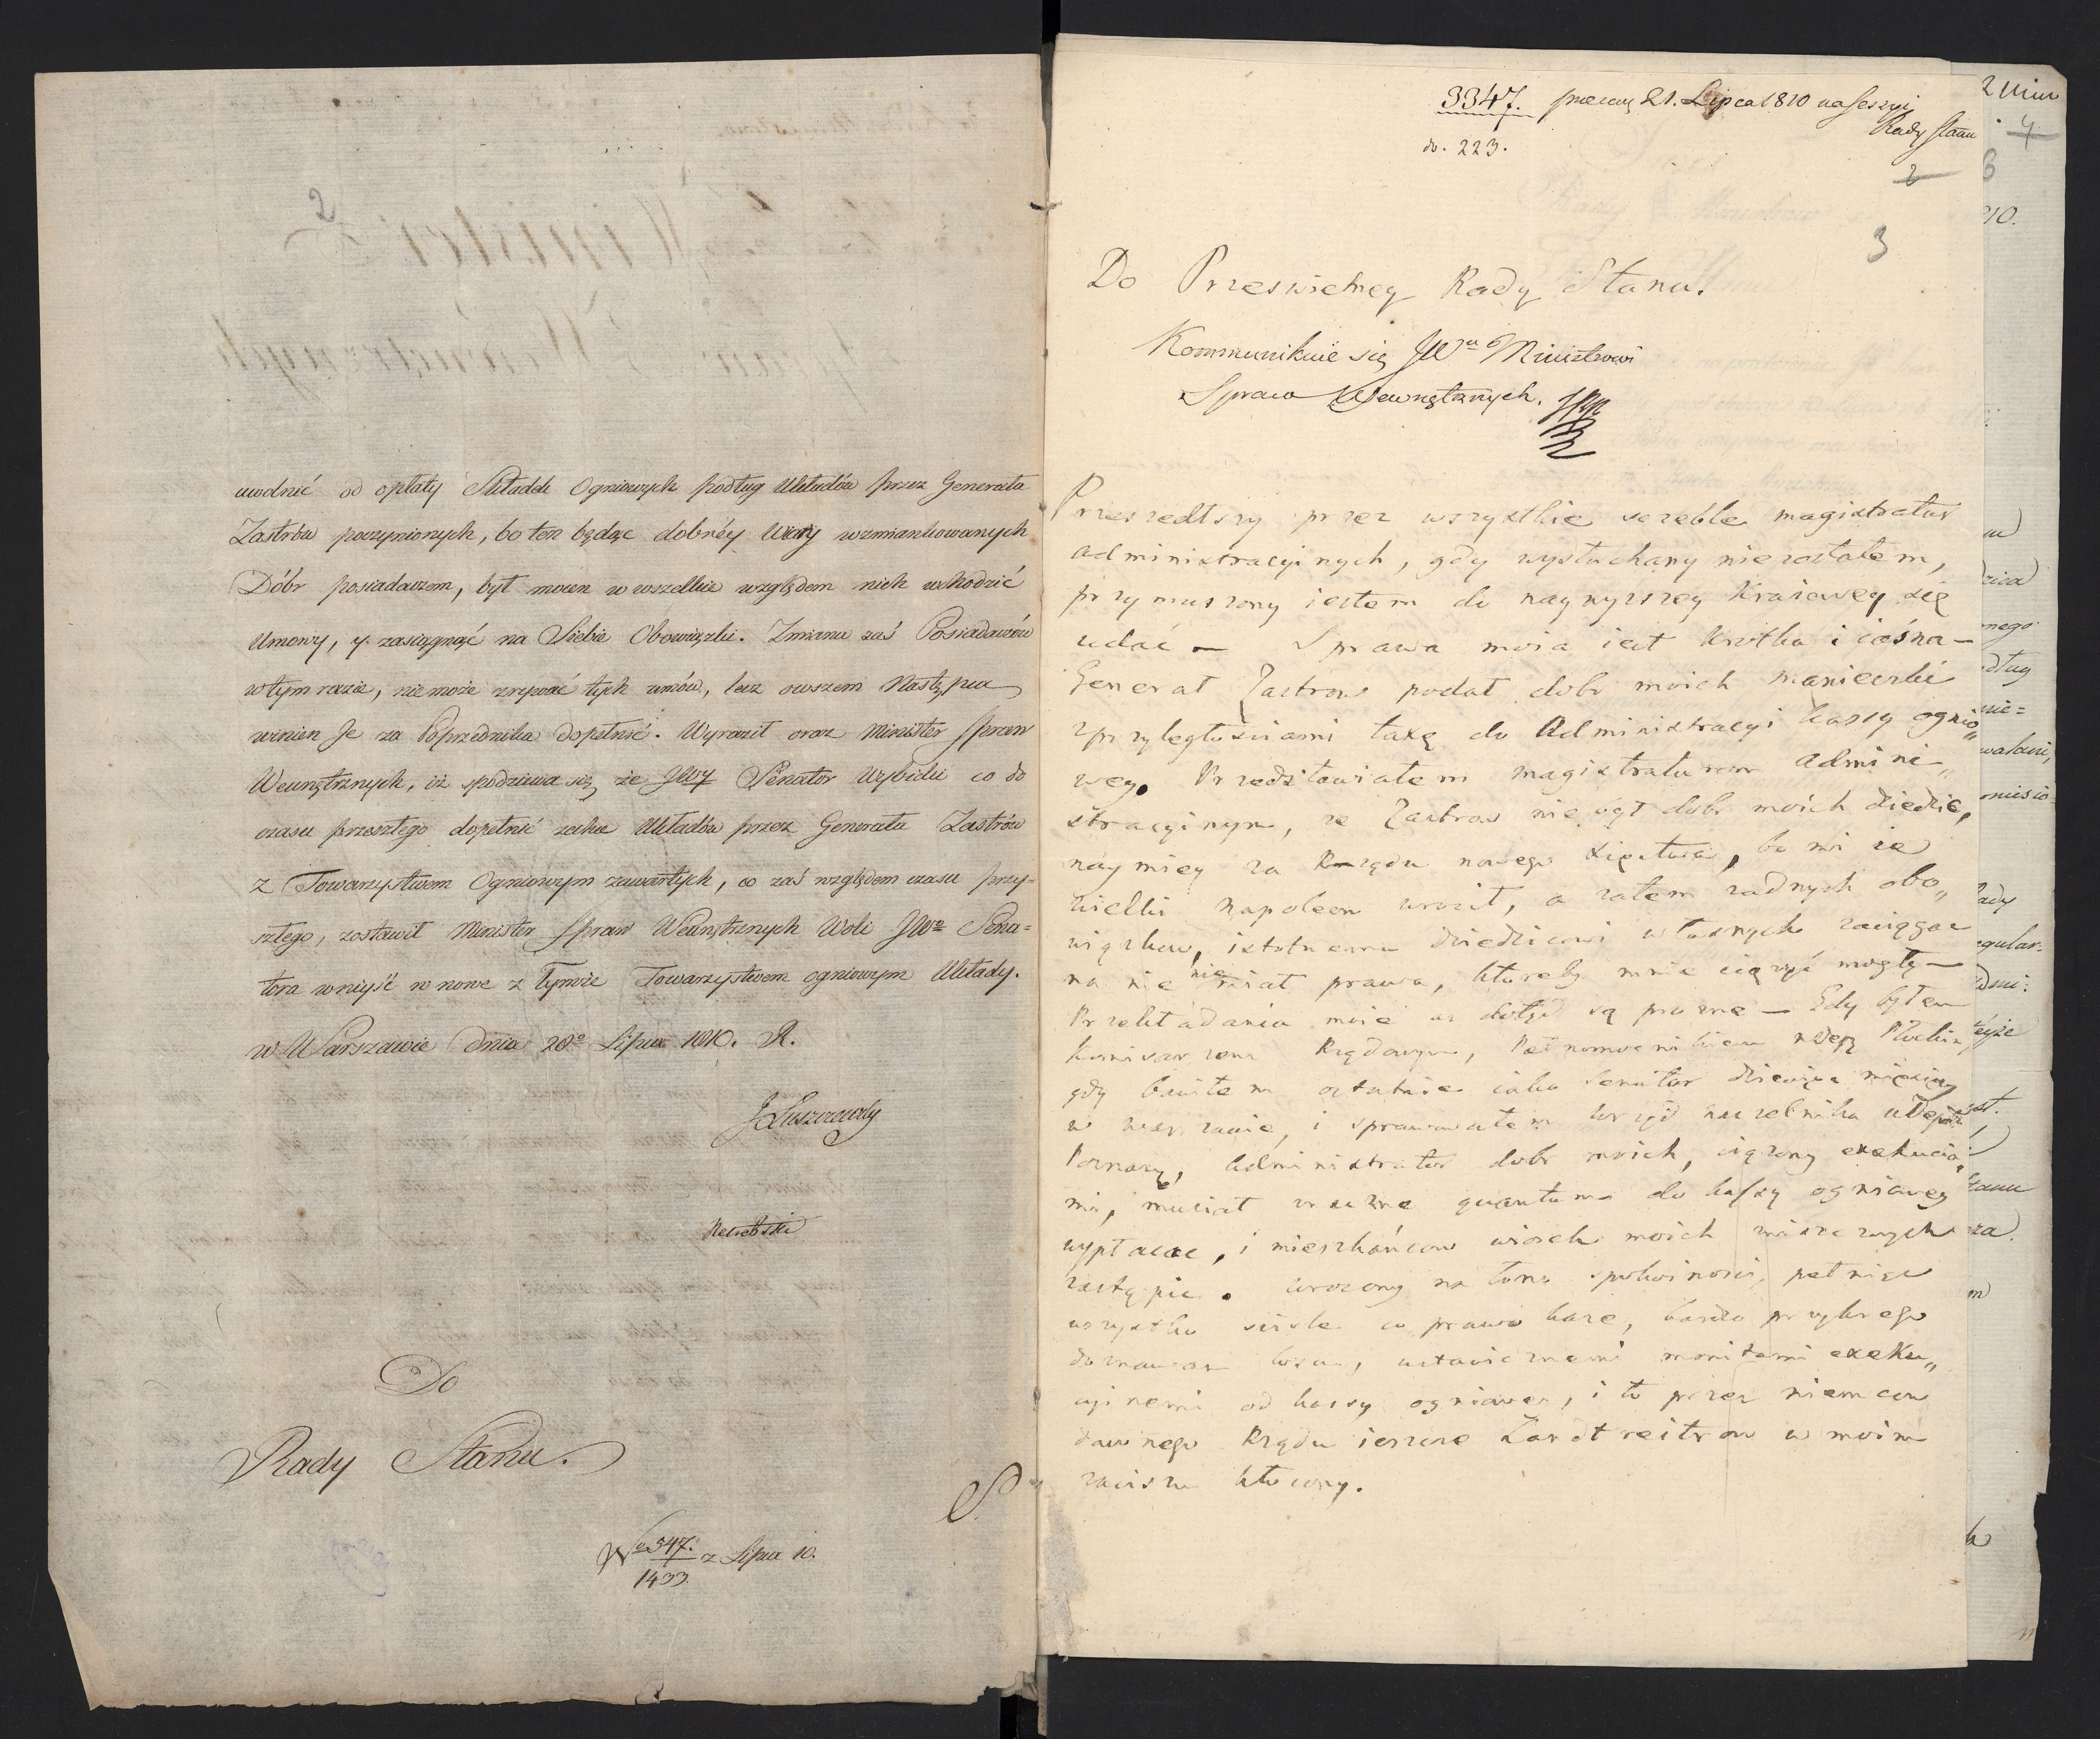 2
uwolnić od opłaty Składek Ogniowych podług Układów przez Generała
Zastrów poczynionych, bo ten będąc dobréy Wiary wzmiankowanych
Dóbr posiadaczem, był mocen w wszelkie względem nich wchodzić
Umowy, y zaciągnąć na Siebie Obowiązki. Zmiana zaś Posiadaczów
w tym razie, nie może zrywać tych umów, lecz owszem Następca
winien Je za Poprzednika dopełnić. Wyraził oraz Minister Spraw
Wewnętrznych, iż spodziewa się, że JWny Senator Wybicki co do
czasu przeszłego dopełnić zechce Układów przez Generała Zastrów
z Towarzystwem Ogniowym zawartych, co zaś względem czasu przy=
szłego, zostawił Minister Spraw Wewnętrznych Woli JWo Sena=
tora wniyść w nowe z Tymże Towarzystwem ogniowym Układy.
w Warszawie dnia 20o Lipca 1810. R.
JŁuszczewski
Do
Rady Stanu.
No 547.
1433.
z Lipca 10.
3347. 21. Lipca 1810 na Sessyi
Rady Stanu
do. 223.
2
3
Do Prześwietney Rady Stanu.
Kommunikuie się JWu Ministrowi
Spraw Wewnętrznych.
Przeszedłszy przez wszystkie szczeble magistratur
administracyinych, gdy wysłuchany nie zostałem,
przymuszony iestem do naywyższey Kraiowey się
udać — Sprawa moia iest krótka i iaśna —
Generał Zastrow podał dobr moich Manieczki
z przyległościami taxę do Administracyi kassy ognio„
wey. Przedstawiałem magistraturom admini„
stracyinym, że Zastrow nie był dobr moich dziedzic,
naymiey za Rządu nowego Xięstwa, bo mi ie
wielki Napoleon wrocił, a zatem żadnych obo„
wiązkow, istotnemu dziedzicowi własnych zaciągać
na nie nie miał prawa, ktoreby mnie ciążyć mogły —
Przekładania moie aż dotąd są prożne — Gdy byłem
Komisarzem Rządowym, Pełnomocnikiem
gdy bawiłem ostatnie iako Senator dziewięć miesięcy
w Warszawie, i sprawowałem urząd naczelnika
Poznań, administrator dobr moich, ciążony exekucia„
mi, musiał znaczne quantum do kassy ogniowey
wypłacać, i mieszkańcow wiosek moich
zastąpić. wrocony na łono spokoiności, pełniąc
wszystko ściśle co prawo każe, bardzo przykrego
doznawam losu, ustawicznemi monitami exeku„
cyinemi od kassy ogniowey, i to przez niemcow
dawnego Rządu ieszcze Landtreitrow w moim
zaciszu kłocony.